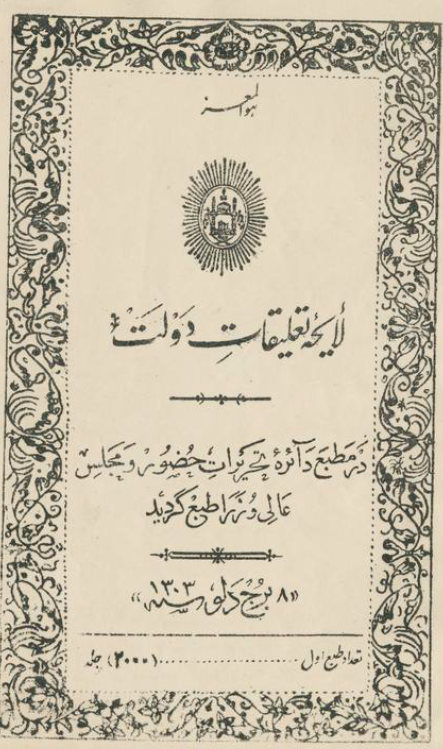 هوالمعز
لایحه تعلیقات دولت
در مطبع دآئرۀ تحریرات حضور و مجلس
عالی وزرا طبع گردید
«۸ برج دلو سنه ۱۳۰۳»
تعداد طبع اول .................... (۲۰۰۰) جلد